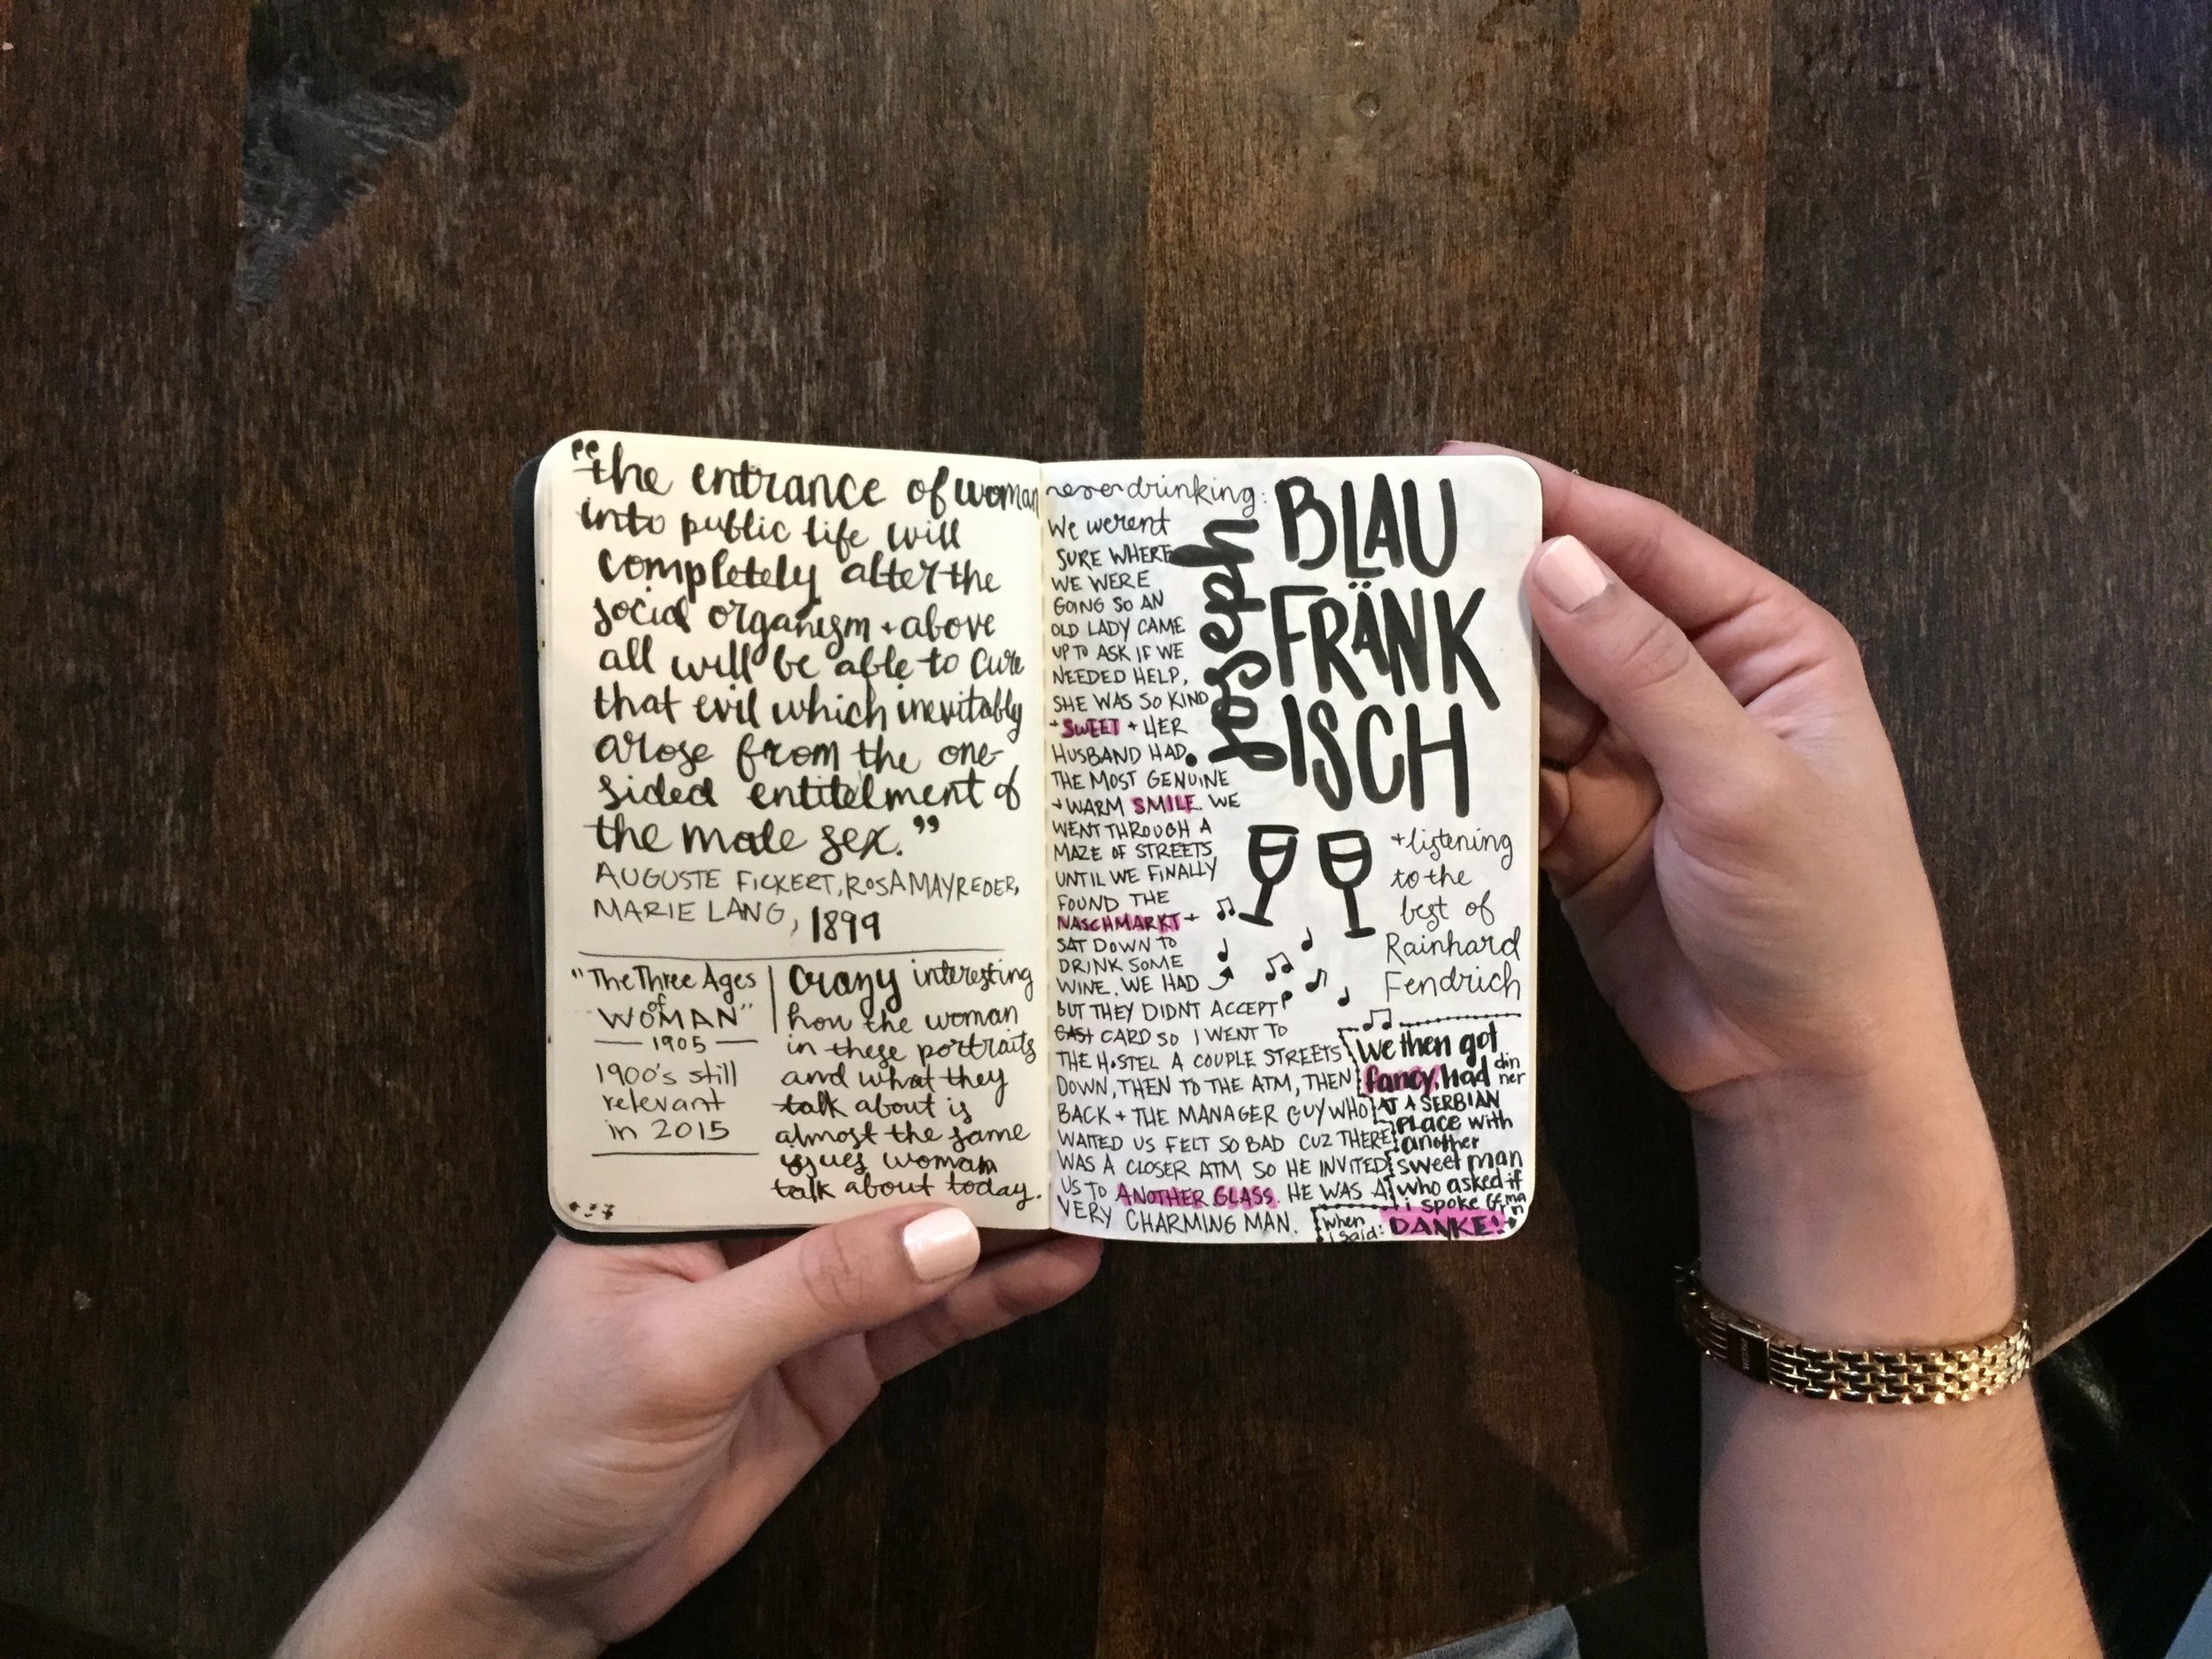 "the entrance of woman
into public life will
completely alter the
social organism + above
all will be able to cure
that evil which inevitably
arose from the one-
sided entitelment of
the male sex."
AUGUSTE FICKERT, ROSA MAYREDER,
MARIE LANG, 1899
"The Three Ages
of
WOMAN"
1905
1900's still
relevant
in 2015
Crazy interesting
how the woman
in these portraits
and what they
talk about is
almost the same
issues woman
talk about today.
drinking:
We werent
SURE WHERE
WE WERE
GOING SO AN
OLD LADY CAME
UP TO ASK IF WE
NEEDED HELP,
SHE WAS SO KIND
+ SWEET + HER
HUSBAND HAD
THE MOST GENUINE
+ WARM SMILE. WE
WENT THROUGH A
MAZE OF STREETS
UNTIL WE FINALLY
FOUND THE
NASCHMARKT +
SAT DOWN TO
DRINK SOME
WINE. WE HAD
BUT THEY DIDNT ACCEPT
CARD SO I WENT TO
THE HOSTEL A COUPLE STREETS
DOWN, THEN TO THE ATM, THEN
BACK + THE MANAGER GUY WHO
WAITED US FELT SO BAD CUZ THERE
WAS A CLOSER ATM SO HE INVITED
US TO ANOTHER GLASS. HE WAS A
VERY CHARMING MAN.
Joseph
BLAU
FRÄNK
ISCH
+ listening
to the
best of
Rainhard
Fendrich
We then got
fancy, had dinner
AT A SERBIAN
PLACE with
another
sweet man
who asked if
i spoke German
when
i said: DANKE!